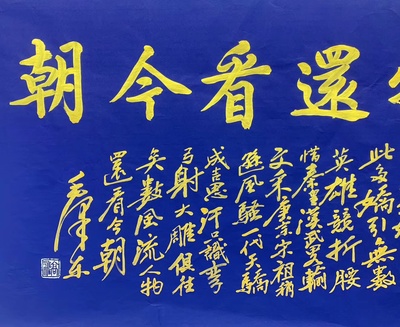 還看今朝
此多嬌引無數
英雄競折腰
惜秦皇漢武畧輸
文采唐宗宋祖稍
遜風騷一代天驕
成吉思汗只識彎
弓射大雕俱往
矣數風流人物
還看今朝
毛澤东